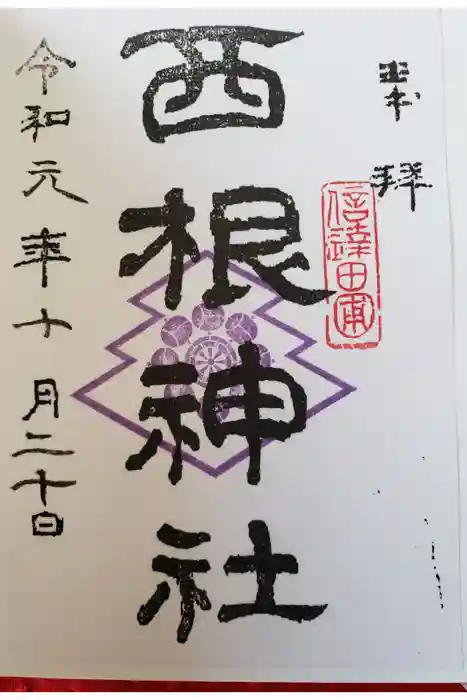 奉拝
信達田甫
西根神社
令和元年十月二十日